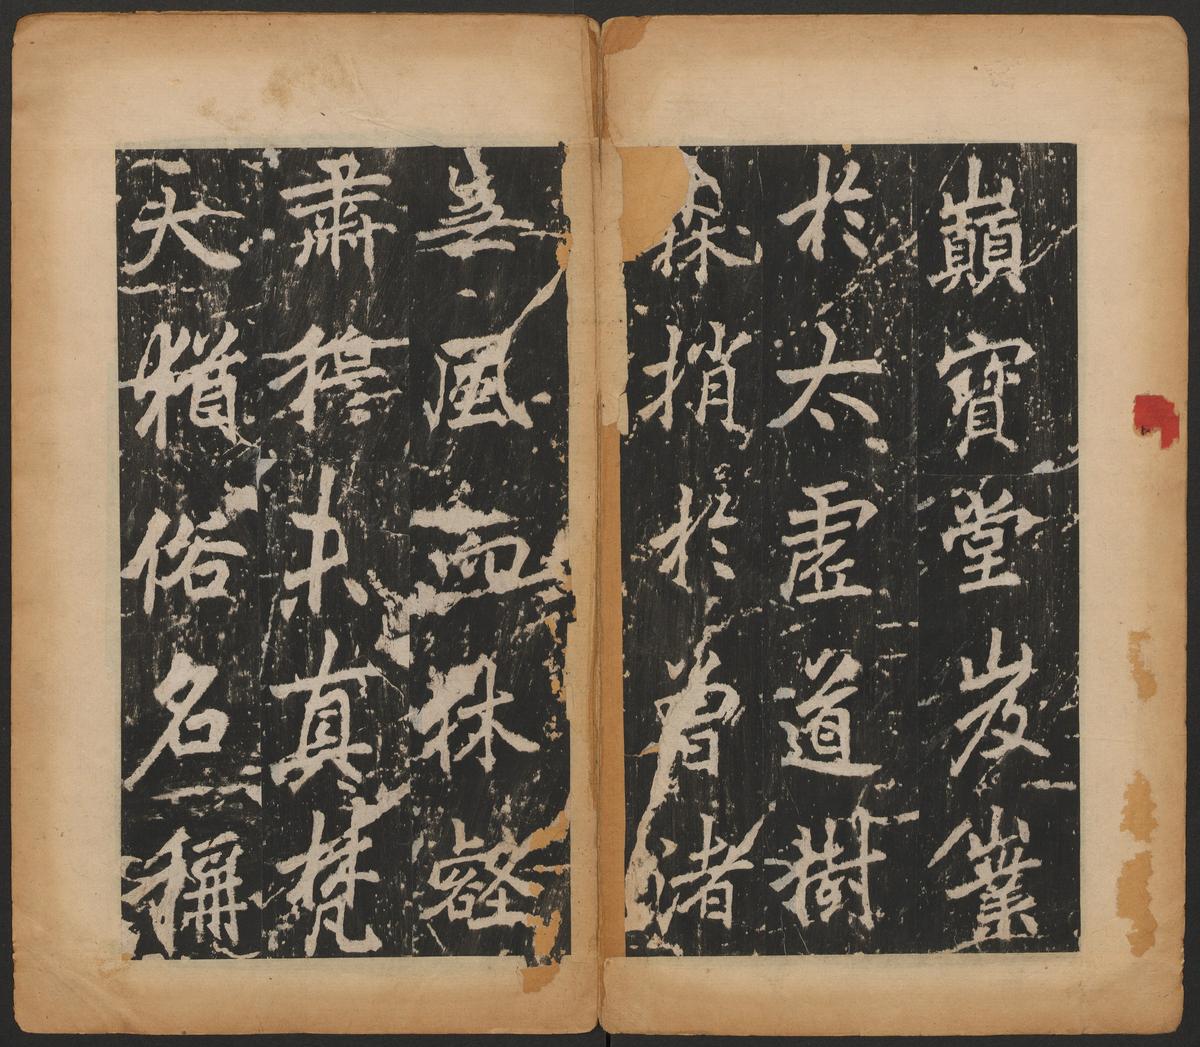 巔寶堂岌嶪
於太虛道樹
森梢於曾渚
無風而林壑
肅穆未真梵
天猶俗名稱